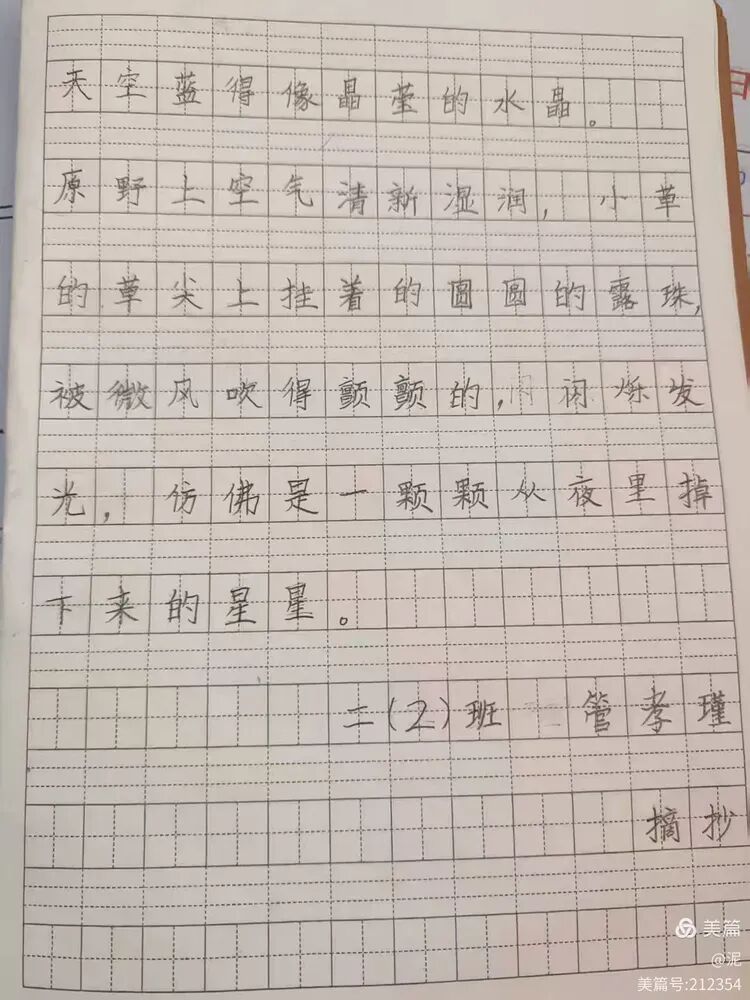 天空蓝得像晶莹的水晶。
原野上空气清新湿润，小草
的草尖上挂着的圆圆的露珠，
被微风吹得颤颤的，闪烁发
光，仿佛是一颗颗从夜里掉
下来的星星。
二（2）班 管孝瑾
摘抄
美篇
@泥
美篇号:212354